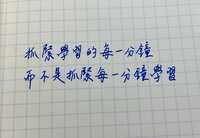 抓緊學習的每一分鐘
而不是抓緊每一分鐘學習